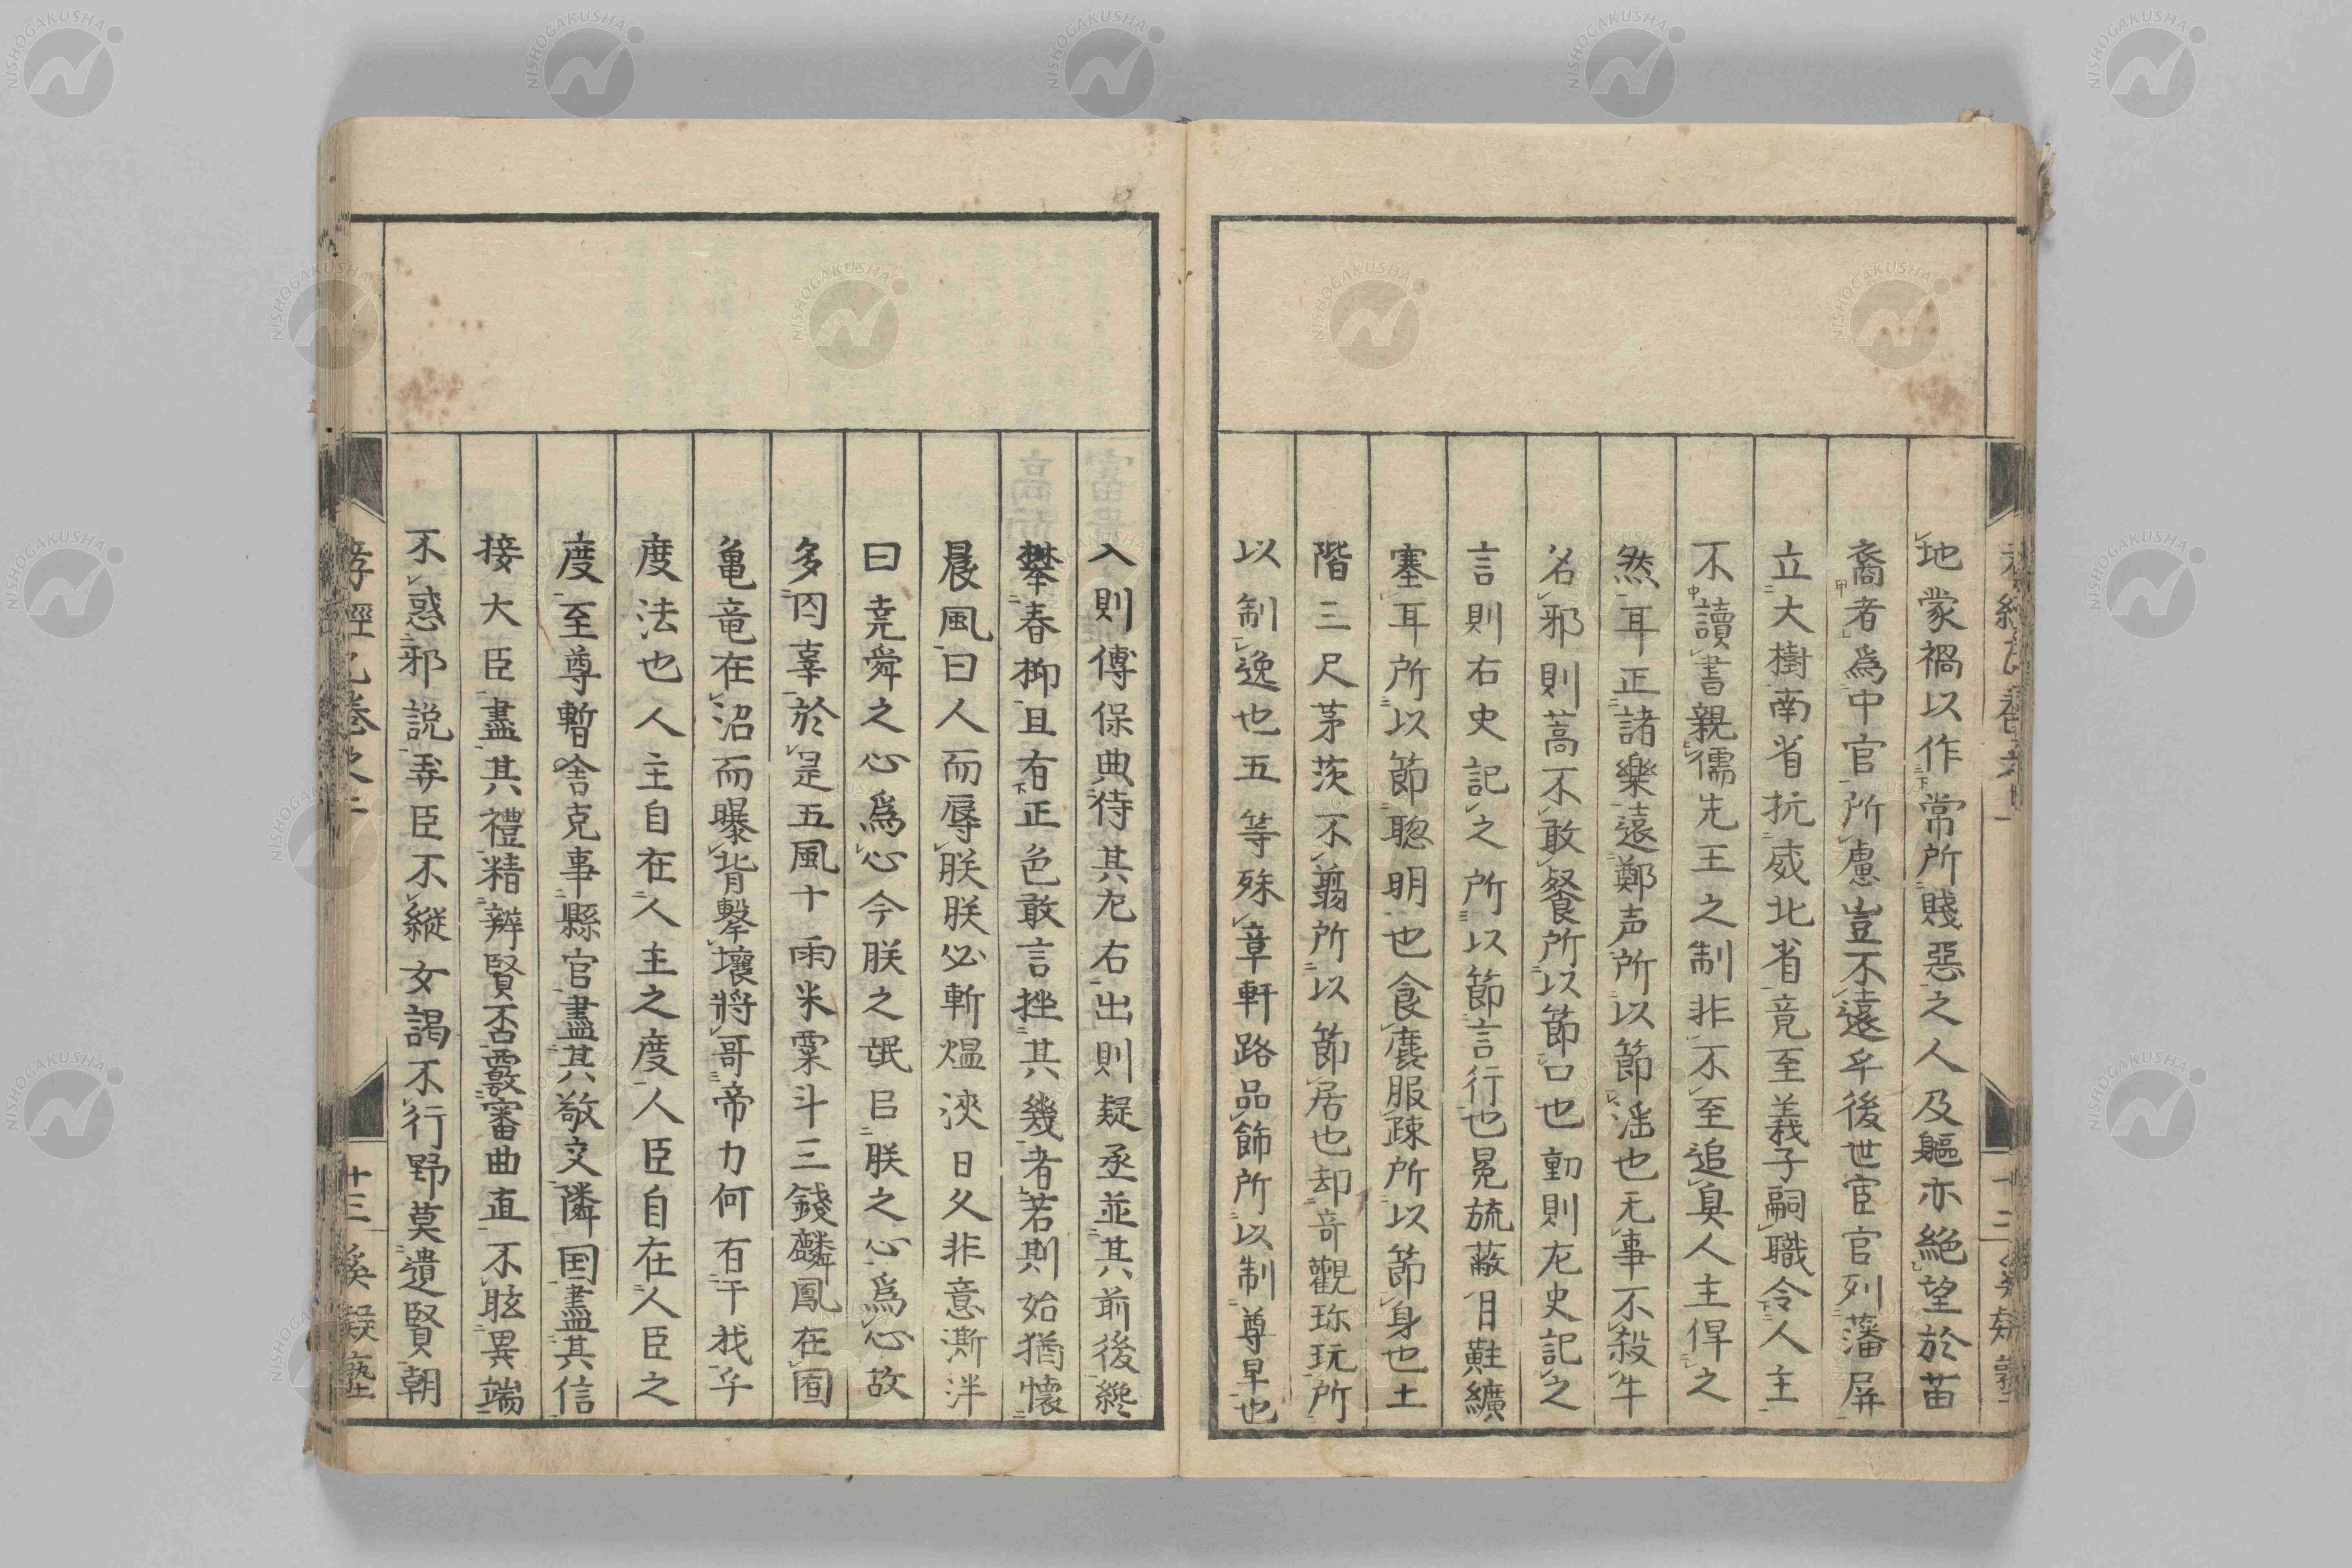 地蒙禍以作常所賤惡之人及軀亦絶望於苗
裔者爲中官所慮豈不遠乎後世宦官列藩屏
立大樹南省抗威北省竟至義子嗣職令人主
不讀書親儒先王之制非不至追臭人主倶之
然耳正諸樂遠鄭声所以節滛也无事不殺牛
名邪則蒿不敢餐所以節口也動則左史記之
言則右史記之所以節言行也冕旒蔽目黈纊
塞耳所以節聡明也食麄服疎所以節身也土
階三尺茅茨不翦所以節居也却奇觀珎玩所
以制逸也五等殊章軒路品飾所以制尊卑也
入則傅保典待其左右出則疑丞並其前後纔
攀春柳且有正色敢言挫其幾者若則始猶懷
晨風曰人而辱朕朕必斬煴浹日久非意澌泮
曰尭舜之心爲心今朕之氓㠯朕之心爲心故
多囚辜於是五風十雨米粟斗三錢麟鳳在囿
亀竜在沼而曝背擊壤將哥帝力何有于我乎
度法也人主自在人主之度人臣自在人臣之
度至尊暫舎克事縣官盡其敬交隣国盡其信
接大臣盡其禮精辨賢否覈審曲直不眩異端
不惑邪説弄臣不縦女謁不行野莫遺賢朝
孝經 卷之二
十三 奚疑塾